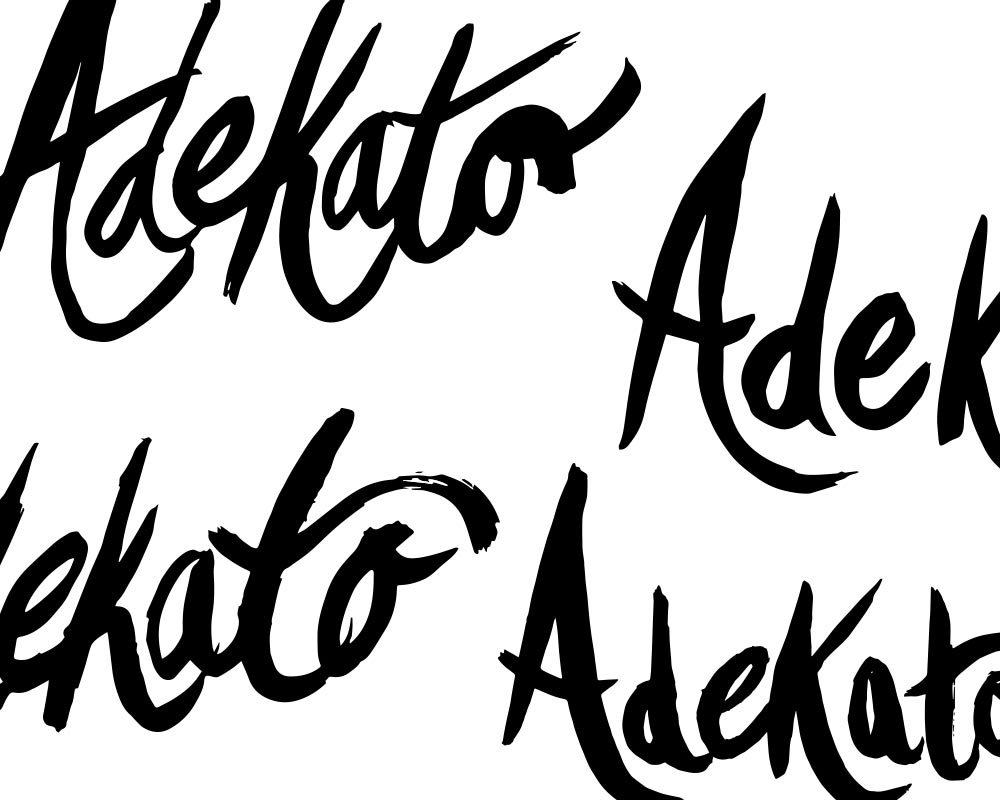 Adekato
Adek
ekato
Adekato